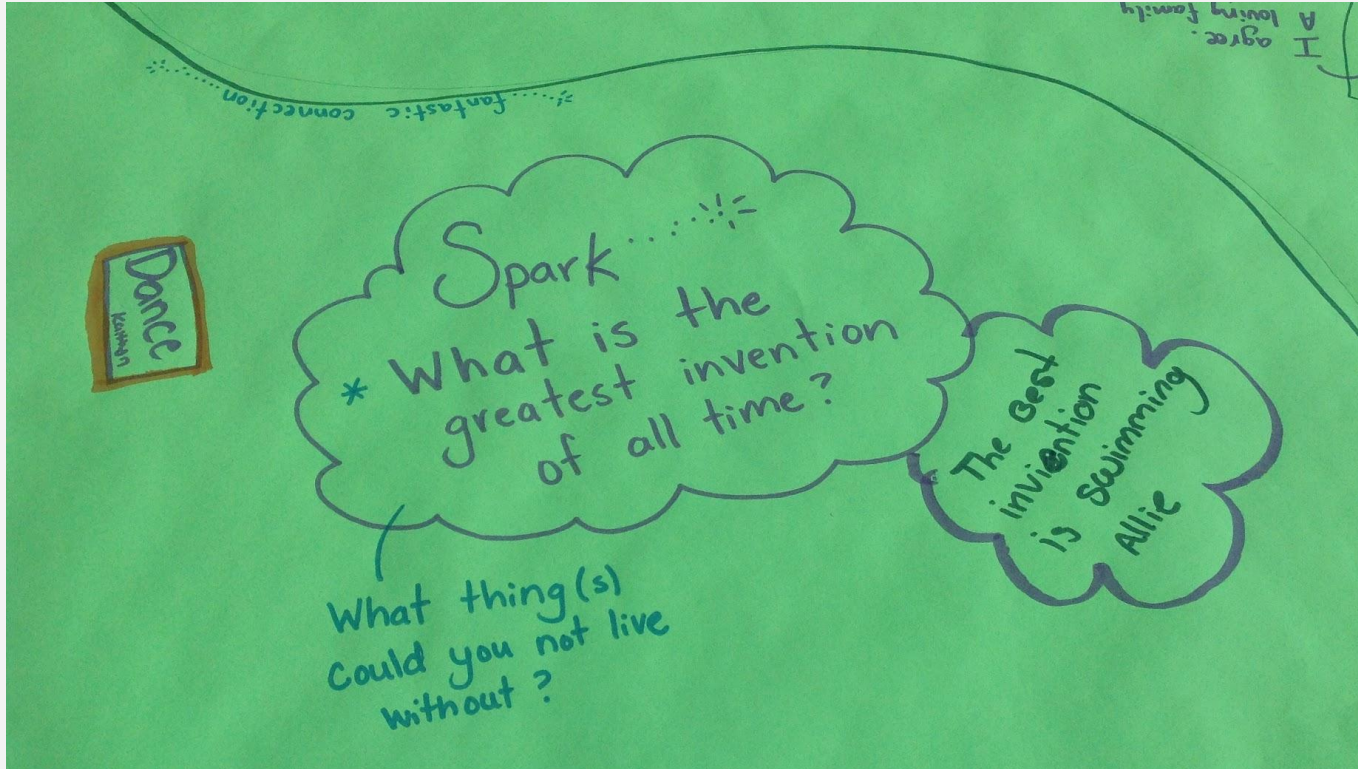 A loving family
I agree.
fantastic connection
Spark
* What is the
greatest invention
of all time?
The Best
invention
is swimming
Allie
Dance
What thing(s)
could you not live
without?